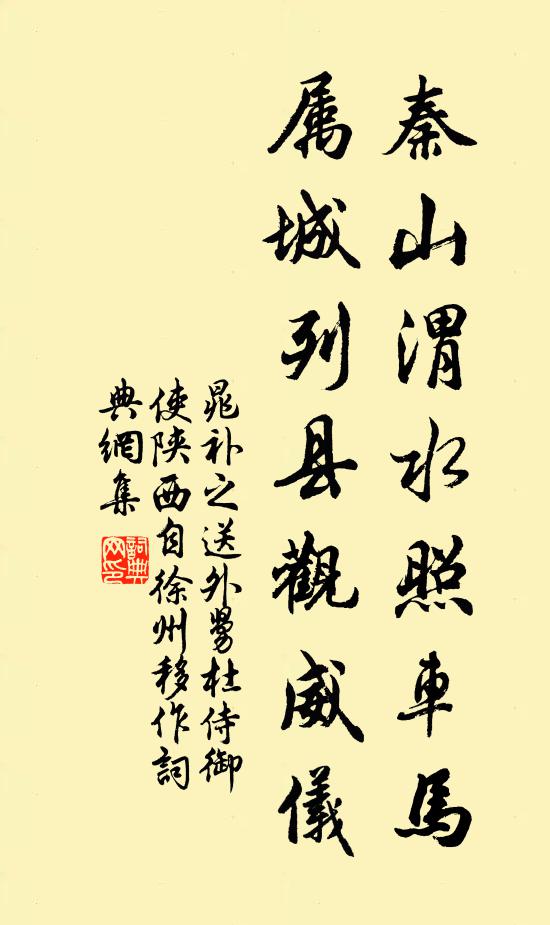 秦山渭水照車馬
属城列县觀威儀
晁补之送外舅杜侍御
使陕西自徐州移作詞
典網集
詞典網印